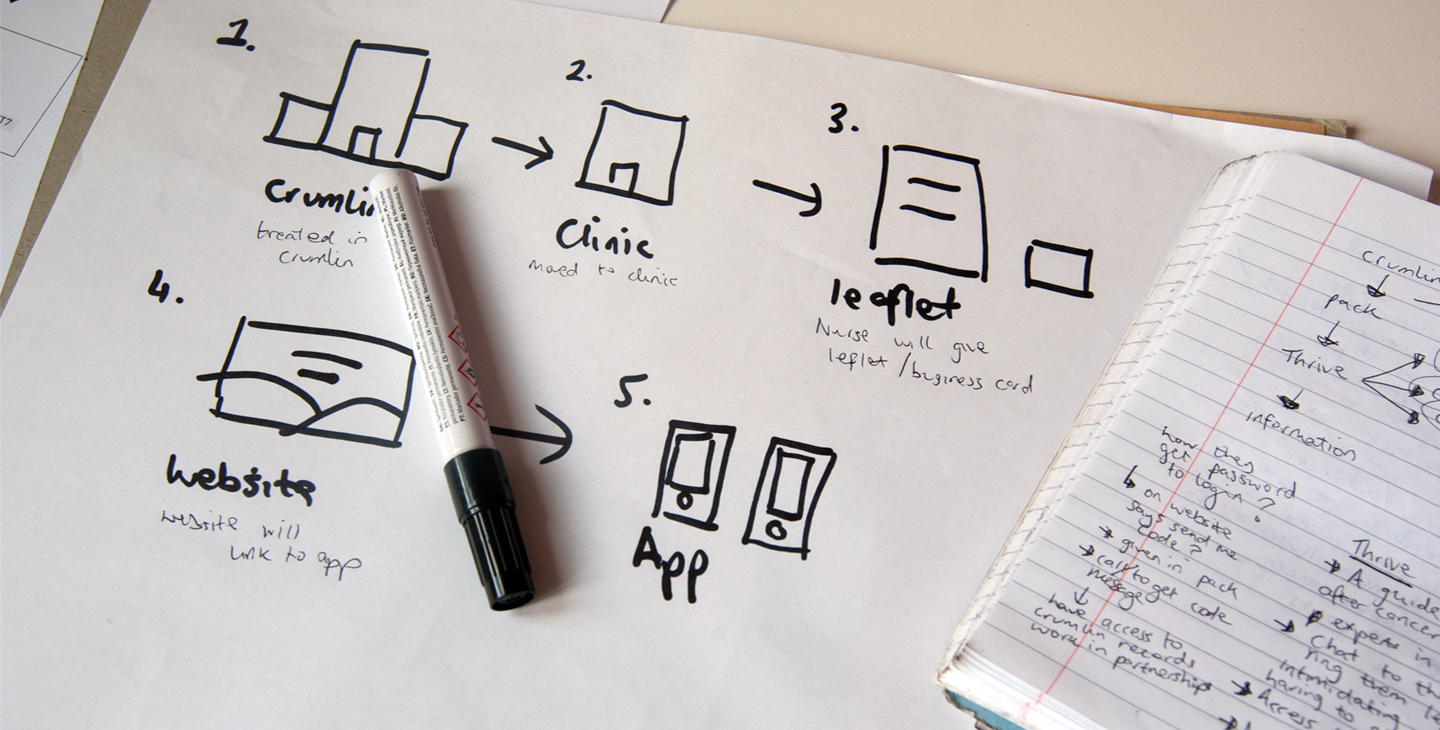 1.
Crumlin
treated in
crumlin
2.
Clinic
moved to clinic
3.
leaflet
Nurse will give
leaflet / business card
4.
website
website will
link to app
5.
App
T7
crumlin
pack
Thrive
information
how they
get password
to login?
on website
says send me
code?
given in pack
call to get code
message
have access to
crumlin records
work in partnership
Thrive
A guide
after cancer
experts in
Chat to th
ring them
intimidating
having to
Access